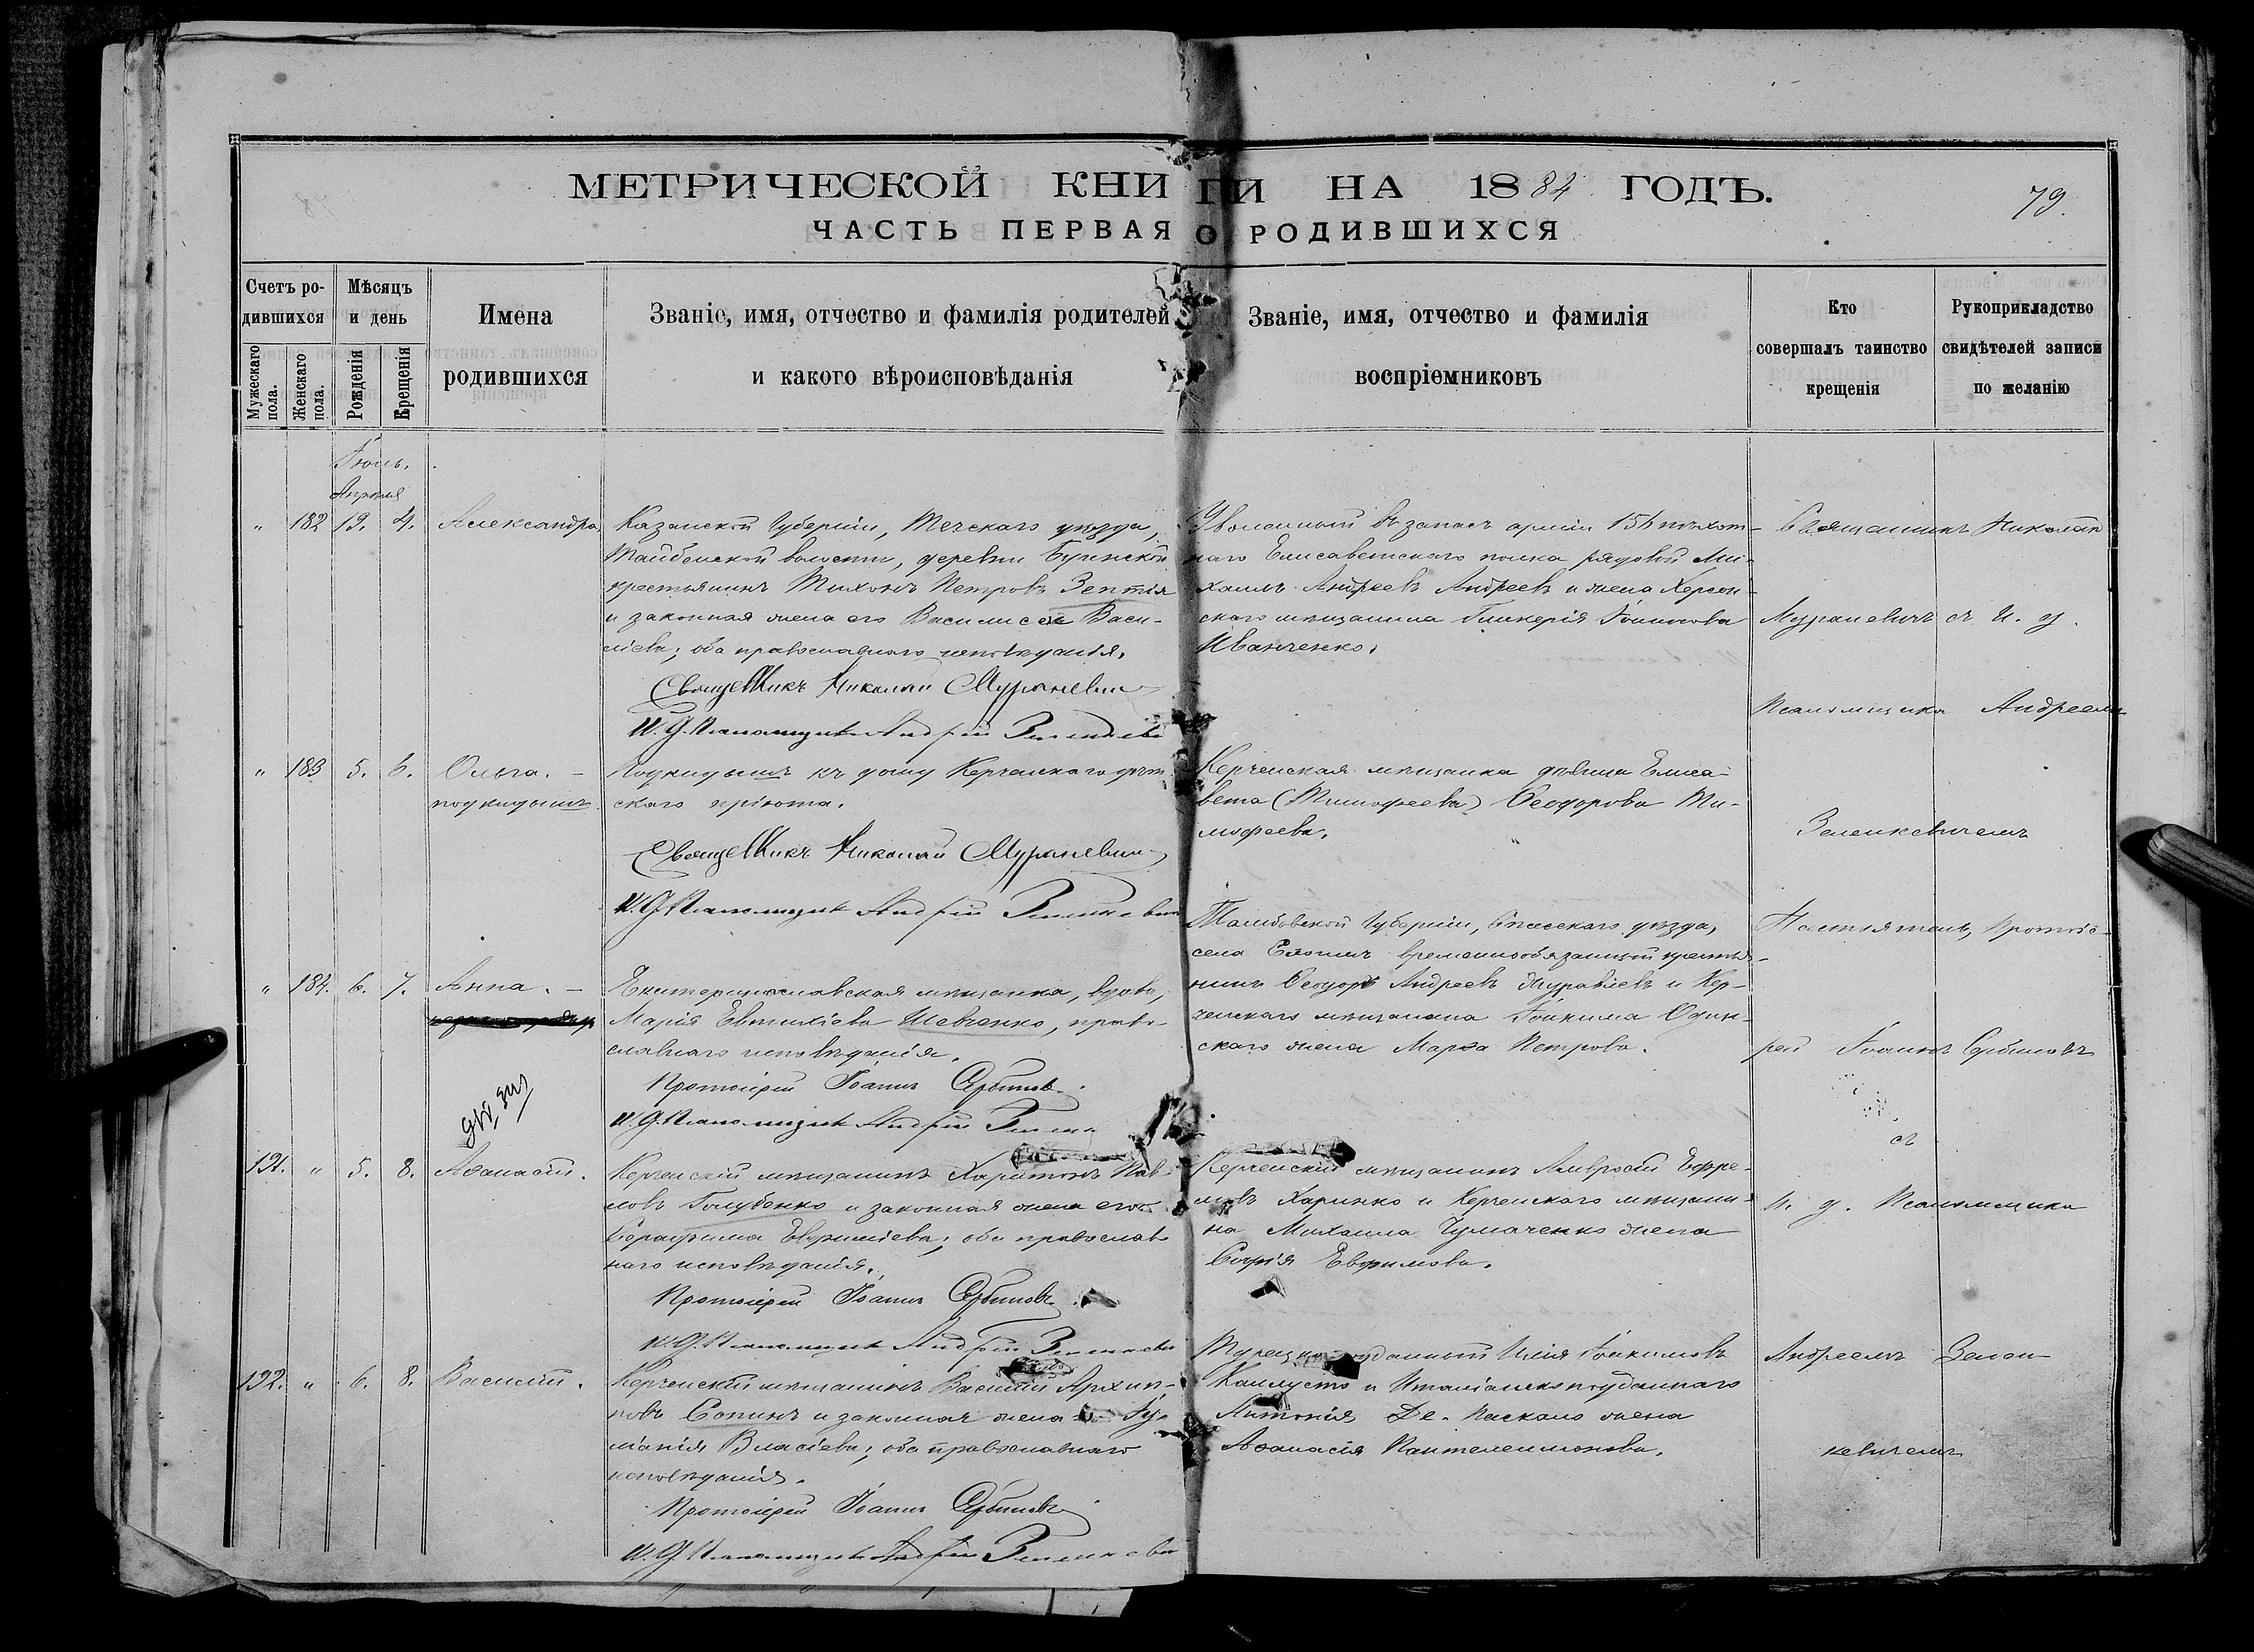 МЕТРИЧЕСКОЙ КНИГИ НА 1884 ГОДЪ.
79.
ЧАСТЬ ПЕРВАЯ О РОДИВШИХСЯ
Счетъ ро-
дившихся
Мужескаго пола.
Женскаго пола.
Мѣсяцъ
и день
Рожденія
Крещенія
Имена
родившихся
Званіе, имя, отчество и фамилія родителей
и какого вѣроисповѣданія
Званіе, имя, отчество и фамилія
воспріемниковъ
Кто
совершалъ таинство
крещенія
Рукоприкладство
свидѣтелей записи
по желанію
Іюль.
Апрѣля
" 182 19. 4. Александра
Казанской Губерніи, уѣзда,
волости, деревни
крестьянинъ Тихонъ Петровъ
и законная жена его Василиса Васи-
ліева; оба православнаго исповѣданія.
Священникъ Николай Мураневичъ
И. Д. Псаломщика Андрей Зеленкевичъ
Уволенный въ запасъ арміи пѣхот-
наго Елисаветскаго полка рядовой Ми-
хаилъ Андреевъ Андреевъ и жена Херсон-
скаго мѣщанина Гликерія
Иванченко.
Священникъ Николай
Мураневичъ съ И. д.
Псаломщика Андреемъ
Зеленкевичемъ
" 183 5. 6. Ольга. –
подкидышъ
Подкидышъ къ дому Керченскаго дѣт-
скаго пріюта.
Священникъ Николай Мураневичъ
И. Д. Псаломщика Андрей Зеленкевичъ
Керченская мѣщанка дѣвица Елиса-
вета (Тимофеева) Ѳеодорова Ти-
мофеева.
" 184. 6. 7. Анна. –
Екатеринославская мѣщанка, вдова,
Марія Евтихіева Шевченко, право-
славнаго исповѣданія.
Протоіерей Іоаннъ Сербиновъ
И. Д. Псаломщика Андрей
Тамбовской Губерніи, Спасскаго уѣзда,
села временнообязанный крестья-
нинъ Ѳеодоръ Андреевъ Журавлевъ и Кер-
ченскаго мѣщанина Іоакима Один-
скаго жена Марѳа Петрова.
Настоятель, Протоіе-
рей Іоаннъ Сербиновъ
съ
и. д. Псаломщика
Андреемъ Зелен-
кевичемъ
191. " 5. 8. Аѳанасій.
Керченскій мѣщанинъ Харитонъ Пав-
ловъ Голубенко и законная жена его
Серафима; оба православ-
наго исповѣданія.
Протоіерей Іоаннъ Сербиновъ
И. Д. Псаломщика Андрей Зеленкевичъ
Керченскій мѣщанинъ Амвросій Ефре-
мовъ Харинко и Керченскаго мѣщани-
на Михаила Чумаченко жена
Софія Евфимова.
192. " 6. 8. Василій.
Керченскій мѣщанинъ Василій Архип-
повъ Сопинъ и законная жена Іу-
ліанія Власіева; оба православнаго
исповѣданія.
Протоіерей Іоаннъ Сербиновъ
И. Д. Псаломщика Андрей Зеленкевичъ
Илія Іоакимовъ
и Итальянскоподданнаго
Антонія Де-Паскало жена
Аѳанасія Пантелеимонова.